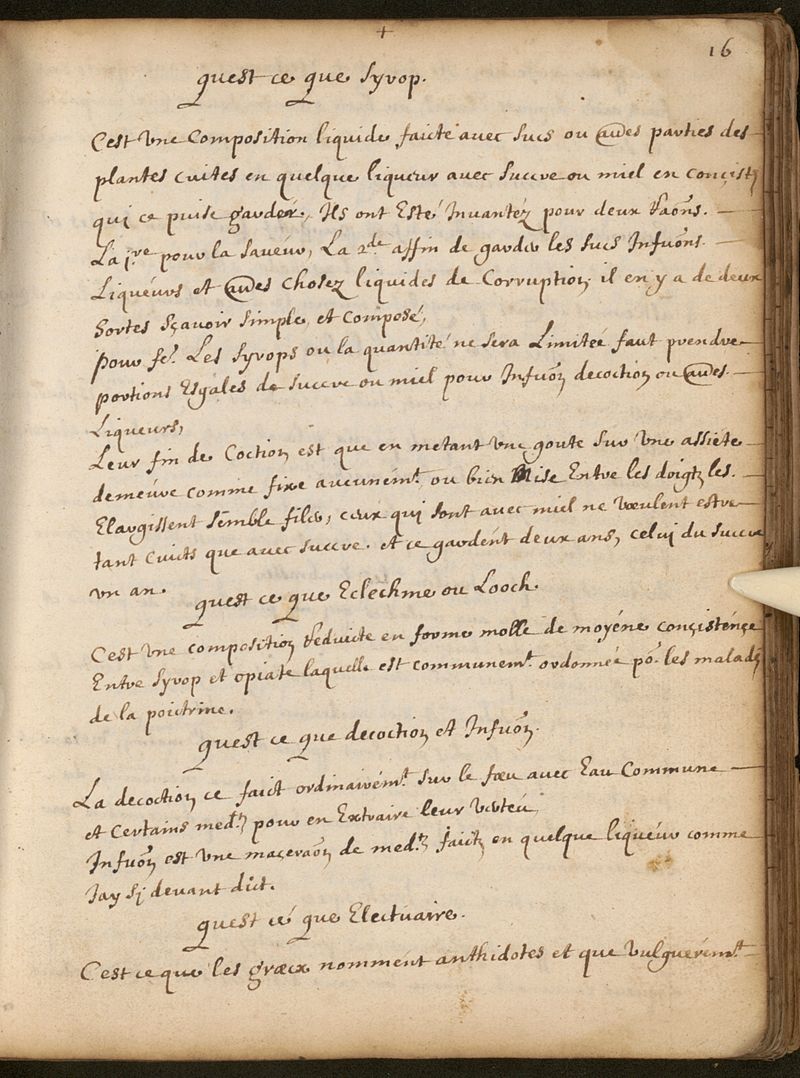 16
quest ce que Syrop.
Cest Vne Composition liquide faicte avec sucs ou aues parties des
plantes cuites en quelque liqueur avec succre ou miel en conçist
qui ce puise garder, Ils ont Esté Invantéz pour deux Raõns.
La j.re pour la saveur, La 2.de affin de garder les sucs Infuõns
Liqueurs et aues Chosez liquides de Corruption il en y a de deux
Sortes sçavoir simple, et Composé,
pour fe.r Les Syrops ou la quantité ne sera Limiteé faut prendre
portions Esgales de succre ou miel pour Infuõn decoction ou aues
Liqueurs,
Leur fin de Coction est que en metant vne goute sur Vne assiete
demeure comme fixe aucunem.t ou bien Mise Entre les doigtz les
Elargissent semble filer, ceux qui sont avec miel ne veulent estre
tant Cuicts que avec succre. et ce gardent deux ans, celui du succre
vn an.
quest ce que Eclechme ou Looch.
Cest Vne composition Reduicte en forme molle de moyéne conçisténçe
Entre Syrop et opiate laquelle est communem.t ordonneé po.r les malades
de la poictrine.
quest ce que decoction et Infuõn.
La decoction ce faict ordinairém.t sur le feu avec Eau Commune
et Certains med.tz pour en Extraire leur Verteu
Infuõn est vne maçeraõn de med.tz faictz en quelque liqueur comme
Jay Sy devant dict.
quest ce que Electuaire.
Cest ce que les græcx nomment anthidotes et que Vulguerém.t